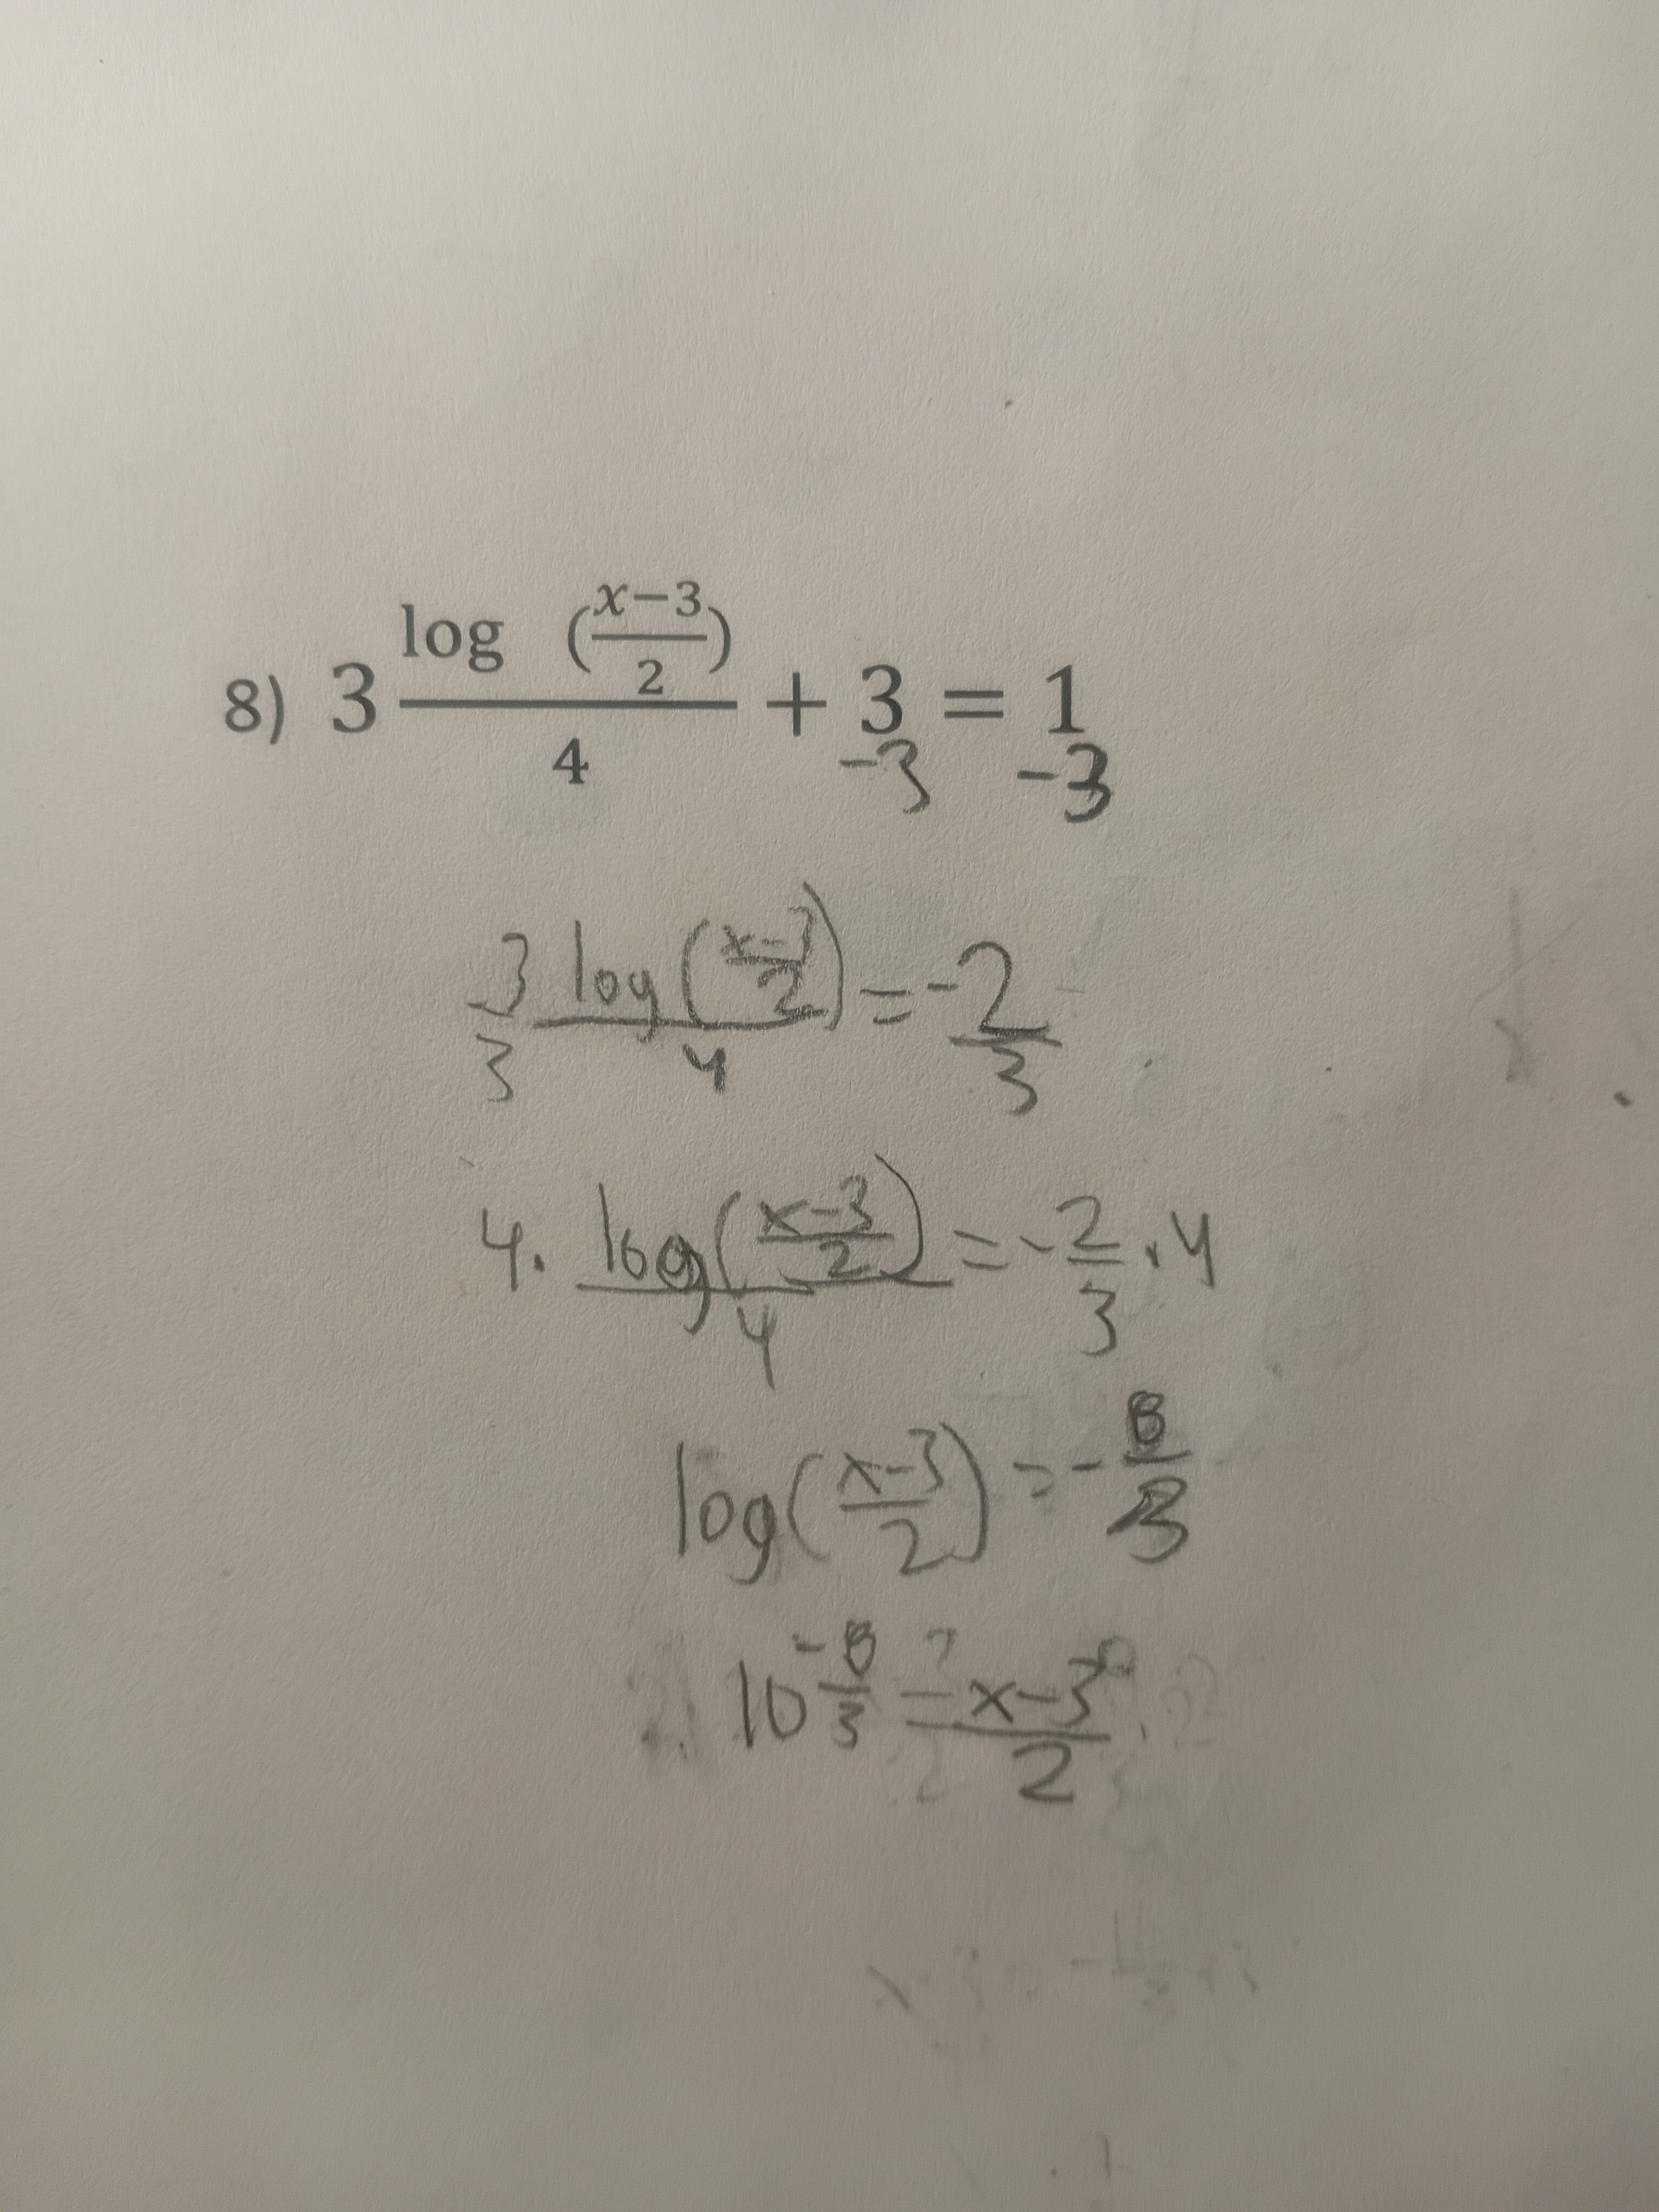 8) 3 log ((x−3)/2)/4 + 3 = 1
-3 -3
3/3 log((x-3)/2)/4 = -2/3
4 · log((x-3)/2)/4 = -2/3 · 4
log((x-3)/2) = -8/3
10^(-8/3) = (x-3)/2